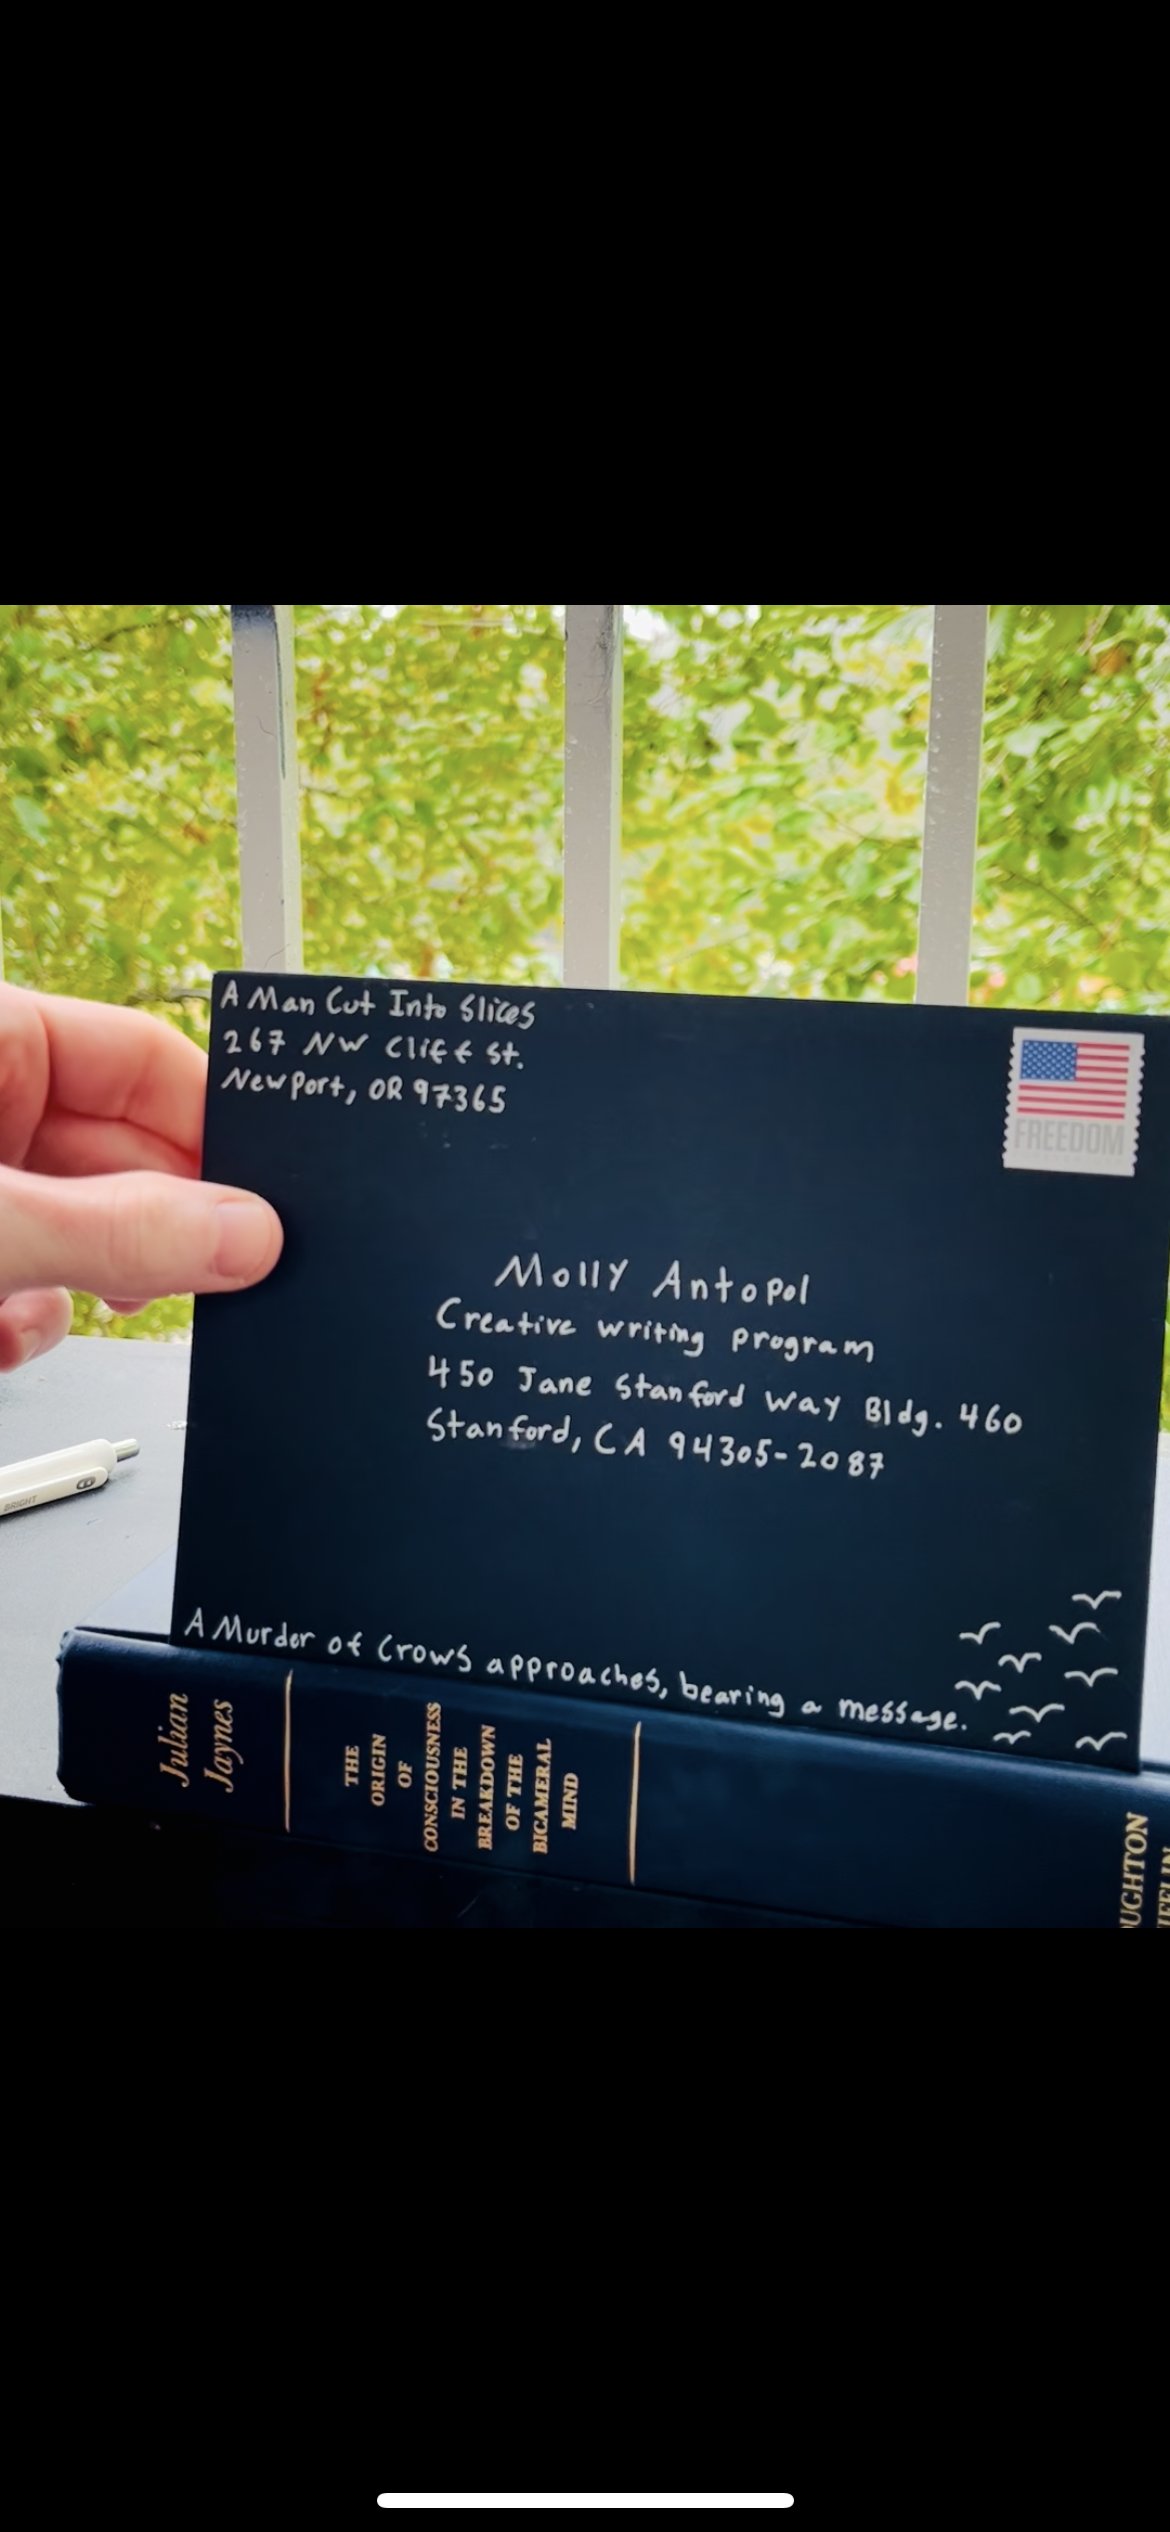 A Man Cut Into Slices
267 NW Cliff St.
Newport, OR 97365
FREEDOM
Molly Antopol
Creative writing program
450 Jane Stanford Way Bldg. 460
Stanford, CA 94305-2087
BRIGHT
A Murder of Crows approaches, bearing a message.
Julian
Jaynes
THE
ORIGIN
OF
CONSCIOUSNESS
IN THE
BREAKDOWN
OF THE
BICAMERAL
MIND